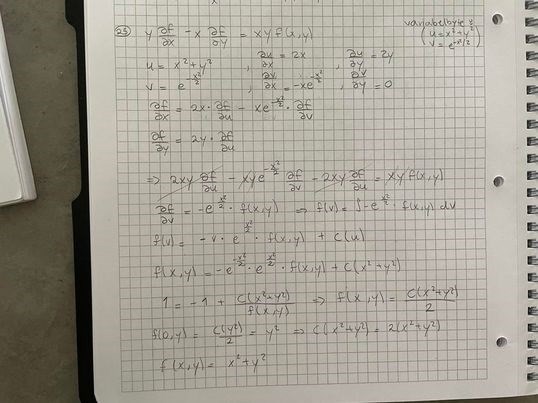 25) y ∂f/∂x - x ∂f/∂y = x y f(x,y)
variabelbyte:
( u = x² + y²
v = e^(-x²/2) )
u = x² + y² , ∂u/∂x = 2x , ∂u/∂y = 2y
v = e^(-x²/2) , ∂v/∂x = -xe^(-x²/2) , ∂v/∂y = 0
∂f/∂x = 2x · ∂f/∂u - xe^(-x²/2) · ∂f/∂v
∂f/∂y = 2y · ∂f/∂u
⇒ 2xy ∂f/∂u - xye^(-x²/2) ∂f/∂v - 2xy ∂f/∂u = xy f(x,y)
∂f/∂v = -e^(x²/2) · f(x,y) ⇒ f(v) = ∫-e^(x²/2) · f(x,y) dv
f(v) = -v · e^(x²/2) · f(x,y) + C(u)
f(x,y) = -e^(-x²/2) · e^(x²/2) · f(x,y) + C(x²+y²)
1 = -1 + C(x²+y²)/f(x,y) ⇒ f(x,y) = C(x²+y²)/2
f(0,y) = C(y²)/2 = y² ⇒ C(x²+y²) = 2(x²+y²)
f(x,y) = x² + y²